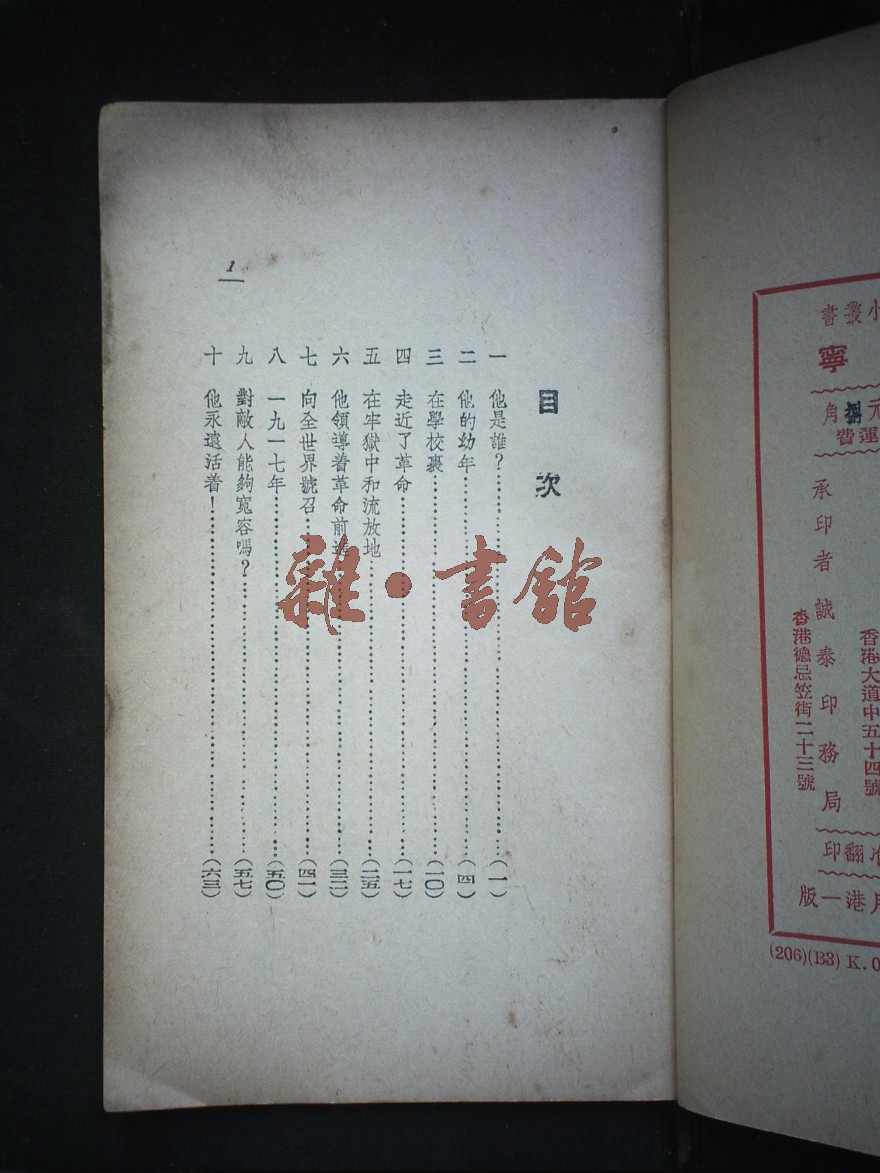 目次
一 他是誰？……(一)
二 他的幼年……(四)
三 在學校裏……(一〇)
四 走近了革命……(一七)
五 在牢獄中和流放地……(二五)
六 他領導着革命前進……(三二)
七 向全世界號召……(四一)
八 一九一七年……(五〇)
九 對敵人能夠寬容嗎？……(五七)
十 他永遠活着！……(六三)
1
雜·書館
小叢書
寧
元捌角
運費
香港大道中五十四號
承印者 誠泰印務局
香港德忌笠街二十三號
准翻印
月港一版
(206)(B3) K. 0